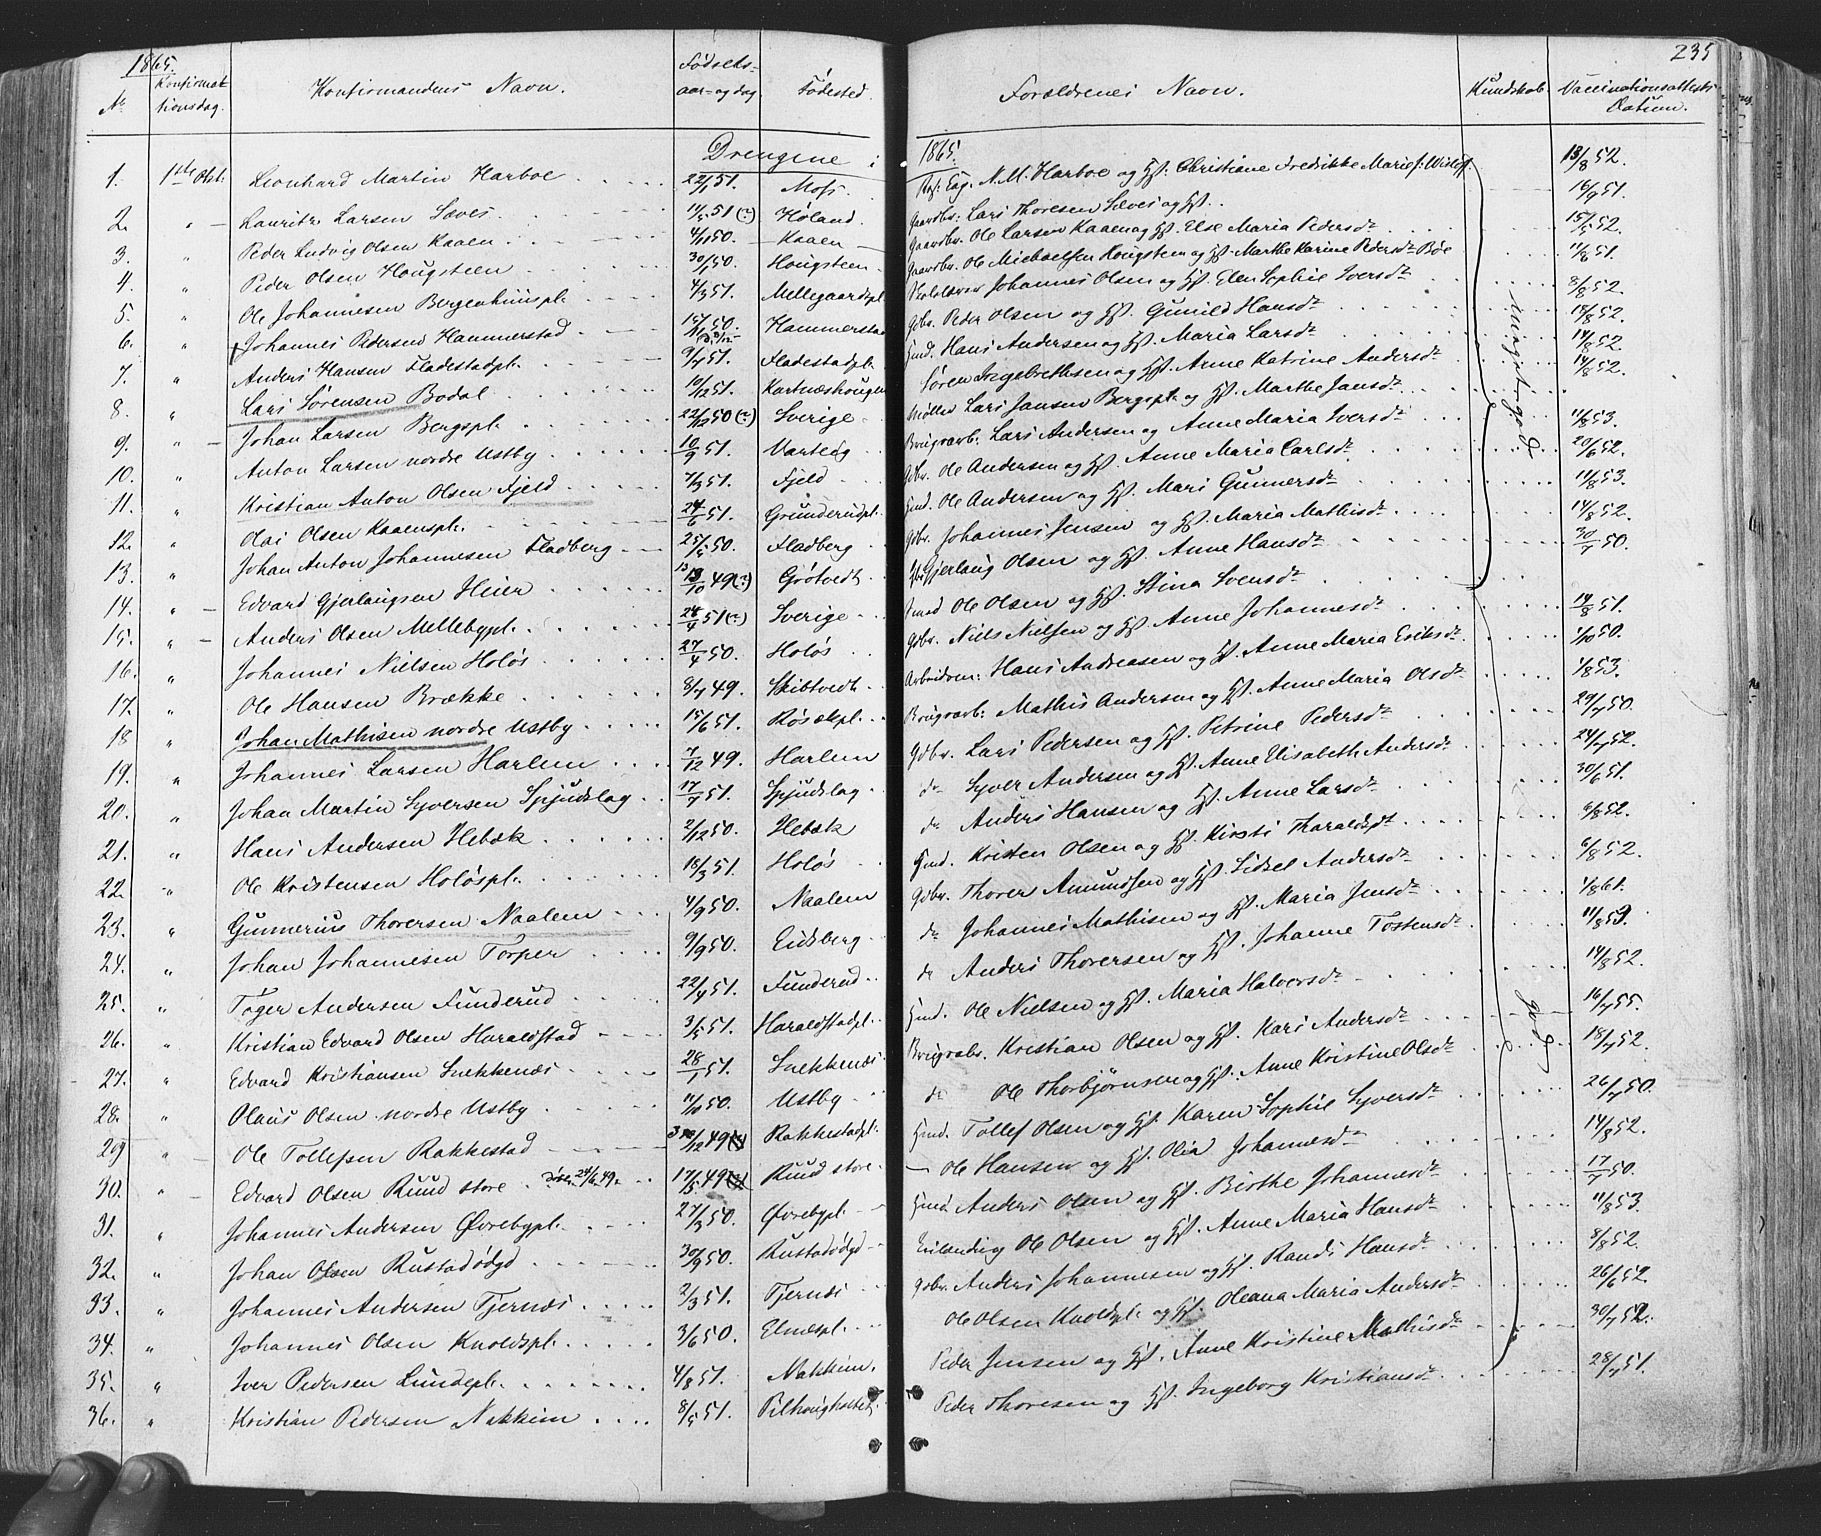 1865.
235
Nr. Konfirmationsdag. Konfirmandens Navn. Fødsels-aar- og dag Fødested. Forældrenes Navn. Kundskab Vaccinationsattests Datum.
Drengene i 1865.
1. 1ste Okt. Leonhard Martin Harboe 22/1 51. Moss. N. M. Harboe og Hst. Christiane Fredrikke Marie f. 13/8 52.
2. " Lauritz Larsen Sæves 14/5 51 (?) Høland. Gaardbr. Lars Thoresen Sæves og Hst. 16/9 51.
3. " Peder Ludvig Olsen Kaaen 4/11 50. Kaaen Gaardbr. Ole Larsen Kaaen og Hst. Else Maria Pedersdr 15/5 52.
4. " Peder Olsen Hougsteen 30/1 50. Hougsteen Gaardbr. Ole Michaelsen Hougsteen og Hst. Marthe Karine Pedersdr Bøe 11/8 51.
5. " Ole Johannesen Bergenhuuspl. 4/3 51. Mellegaardspl. Johannes Olsen og Hst. Elen Sophie Iversdr 8/8 52.
6. " Johannes Pedersen Hammerstad 15/11 50. Hammerstad Gdbr. Peder Olsen og Hst. Gunild Hansdr 14/8 52.
7. " Anders Hansen Fladestadpl. 9/7 51. Fladestadpl. Hmd. Hans Andersen og Hst. Maria Larsdr 14/8 52
8. " Lars Sørensen Bodal 10/12 51. Kartnæshougen Søren Ingebrethsen og Hst. Anne Katrine Andersdr 14/8 52.
9. " Johan Larsen Bergspl. 22/12 50 (?) Sverige Møller Lars Jansen Bergspl. og Hst. Marthe Jansdr
10. " Anton Larsen nordre Ustby 10/9 51. Varteig Brugsarb. Lars Andersen og Anne Maria Iversdr 11/8 53.
11. " Kristian Anton Olsen Fjeld 7/3 51. Fjeld Gdbr. Ole Andersen og Hst. Anne Maria Carlsdr 20/6 52.
12. " Olai Olsen Kaaenspl. 24/6 51. Grunderudpl. Hmd. Ole Andersen og Hst. Mari Gunnersdr 11/8 53.
13. " Johan Anton Johannesen Fladberg 25/5 50. Fladberg Gdbr. Johannes Jensen og Hst. Maria Mathisdr 14/8 52.
14. " Edvard Gjerlaugsen Heier 13/10 49 (?) Grøtvedt Gjerlaug Olsen og Hst. Anne Hansdr 30/7 50.
15. " Anders Olsen Mellebypl. 24/4 51 (?) Sverige Ole Olsen og Hst. Stina Svensdr
16. " Johannes Nielsen Holøs 27/4 50. Holøs Gdbr. Niels Nielsen og Hst. Anne Johannesdr 19/8 51.
17. " Ole Hansen Brække 8/7 49. Skibtvedt Arbeidsm: Hans Andreasen og Hst. Anne Maria Eriksdr 1/10 50.
18 " Johan Mathisen nordre Ustby 15/6 51. Røsækpl. Brugsarb: Mathis Andersen og Hst. Anne Maria Olsdr 1/8 53.
19. " Johannes Larsen Harlem 7/12 49. Harlem Gdbr. Lars Pedersen og Hst. Petrine Pedersdr 29/7 50.
20. " Johan Martin Syversen Spjudslag 17/7 51. Spjudslag do Syver Andersen og Hst. Anne Elisabeth Andersdr 24/7 52.
21. " Hans Andersen Hebæk 2/12 50. Hebæk do Anders Hansen og Hst. Anne Larsdr 30/6 51.
22. " Ole Kristensen Holøspl. 18/3 51. Holøs Hmd. Kristen Olsen og Hst. Kirsti Tharaldsdr 6/8 52.
23. " Gunnerius Thoresen Naalem 4/9 50. Naalem Gdbr. Thorer Amundsen og Hst. Lidsel Andersdr 6/8 52.
24. " Johan Johannesen Torper 9/9 50. Eidsberg do Johannes Mathisen og Hst. Maria Jensdr 1/8 61.
25. " Tøger Andersen Funderud 22/4 51. Funderud do Anders Thoresen og Hst. Johanne Tostensdr 11/8 53.
26. " Kristian Edvard Olsen Haraldstad 3/5 51. Haraldstadpl. Hmd. Ole Nielsen og Hst. Maria Halvorsdr 14/8 52.
27. " Edvard Kristiansen Snekkenæs 28/1 51. Snekkenæs Brugsarb. Kristian Olsen og Hst. Kari Andersdr 16/7 55.
28. " Olaus Olsen nordre Ustby 11/10 50. Ustby do Ole Thorbjørnsen og Hst. Anne Kristine Olsdr 18/7 52.
29 " Ole Tollefsen Rakkestad 30/12 49 Rakkestadpl. Hmd. Tollef Olsen og Hst. Karen Sophie Syversdr 26/7 50.
30. " Edvard Olsen Ruud store 17/5 49 Ruud store Ole Hansen og Hst. Olia Johannesdr 14/8 52.
31. " Johannes Andersen Øvrebypl. 27/3 50. Øvrebypl. Hmd. Anders Olsen og Hst. Birthe Johannesdr 17/7 50.
32. " Johan Olsen Rustadødgd 30/9 50. Rustadødgd Ole Olsen og Hst. Anne Maria Hansdr 11/8 53.
33. " Johannes Andersen Tjernæs 2/3 51. Tjernæs Gdbr. Anders Johannesen og Hst. Randi Hansdr 8/8 52.
34. " Johannes Olsen Knoldspl. 3/6 50. Elnæspl. Ole Olsen Knoldspl. og Hst. Oleana Maria Andersdr 26/6 52.
35. " Iver Pedersen Lundepl. 4/8 51. Nakkim. Peder Jensen og Hst. Anne Kristine Mathisdr 30/7 52.
36. " Kristian Pedersen Nakkim 8/5 51. Pilhoughøitet Peder Thoresen og Hst. Ingeborg Kristiansdr 28/7 51.
meget god
god